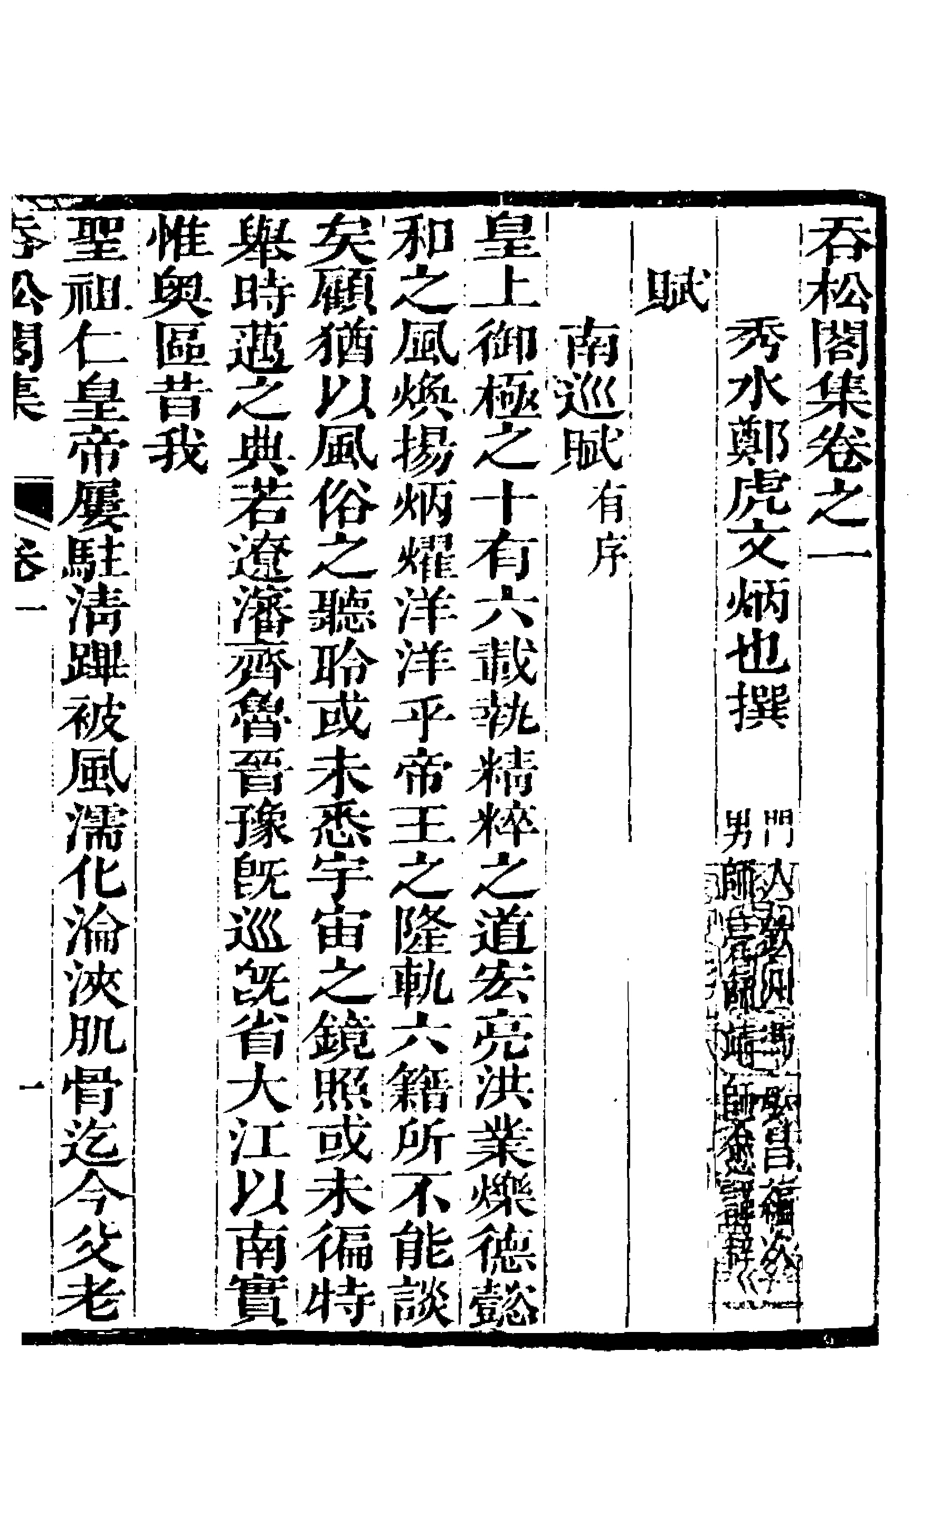 吞松閣集卷之一
秀水鄭虎文炳也撰
門人歙州馮 編次
男師亮師靖師
賦
南巡賦有序
皇上御極之十有六載執精粹之道宏亮洪業爍德懿
和之風煥揚炳燿洋洋乎帝王之隆軌六籍所不能談
矣顧猶以風俗之聽聆或未悉宇宙之鏡照或未徧特
舉時邁之典若遼瀋齊魯晉豫旣巡旣省大江以南實
惟奧區昔我
聖祖仁皇帝屢駐淸蹕被風濡化淪浹肌骨迄今父老
吞松閣集 卷一 一